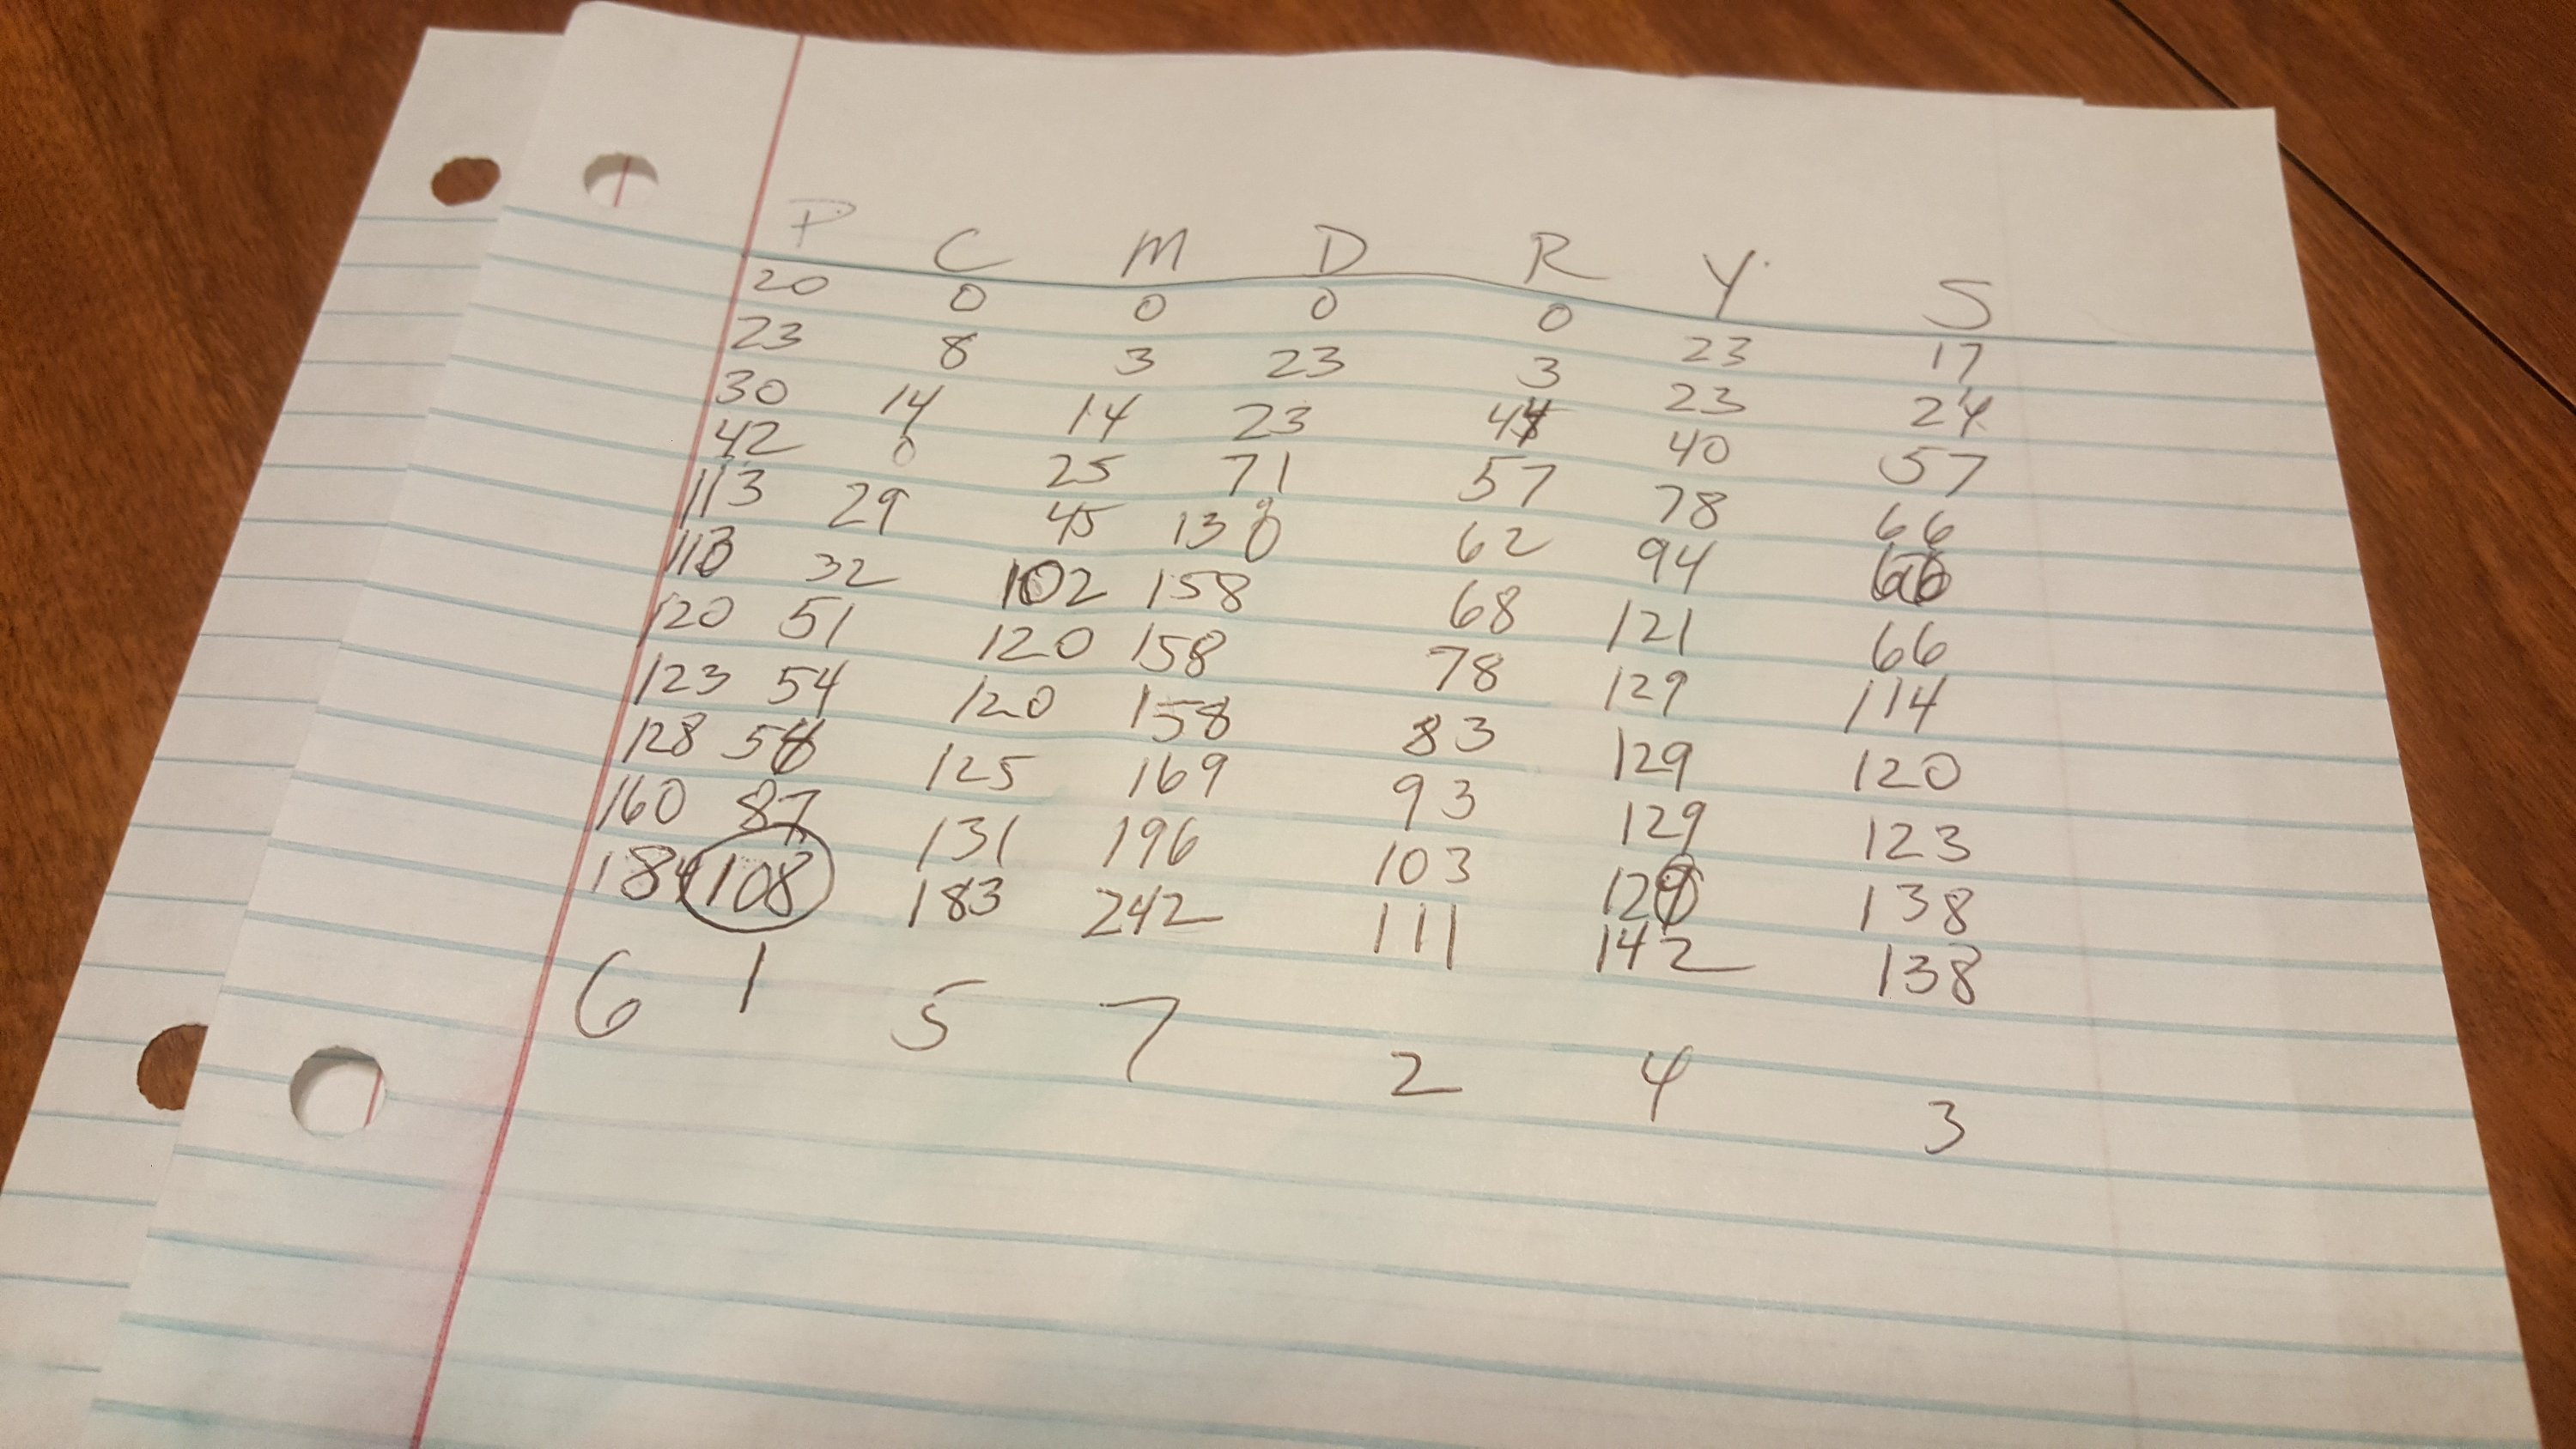 P C M D R Y S
20 0 0 0 0 23 17
23 8 3 23 3 23 24
30 14 14 23 44 40 57
42 0 25 71 57 78 66
113 29 45 138 62 94 66
113 32 102 158 68 121 66
120 51 120 158 78 129 114
123 54 120 158 83 129 120
128 56 125 169 93 129 123
160 87 131 196 103 129 138
184 108 183 242 111 142 138
6 1 5 7 2 4 3